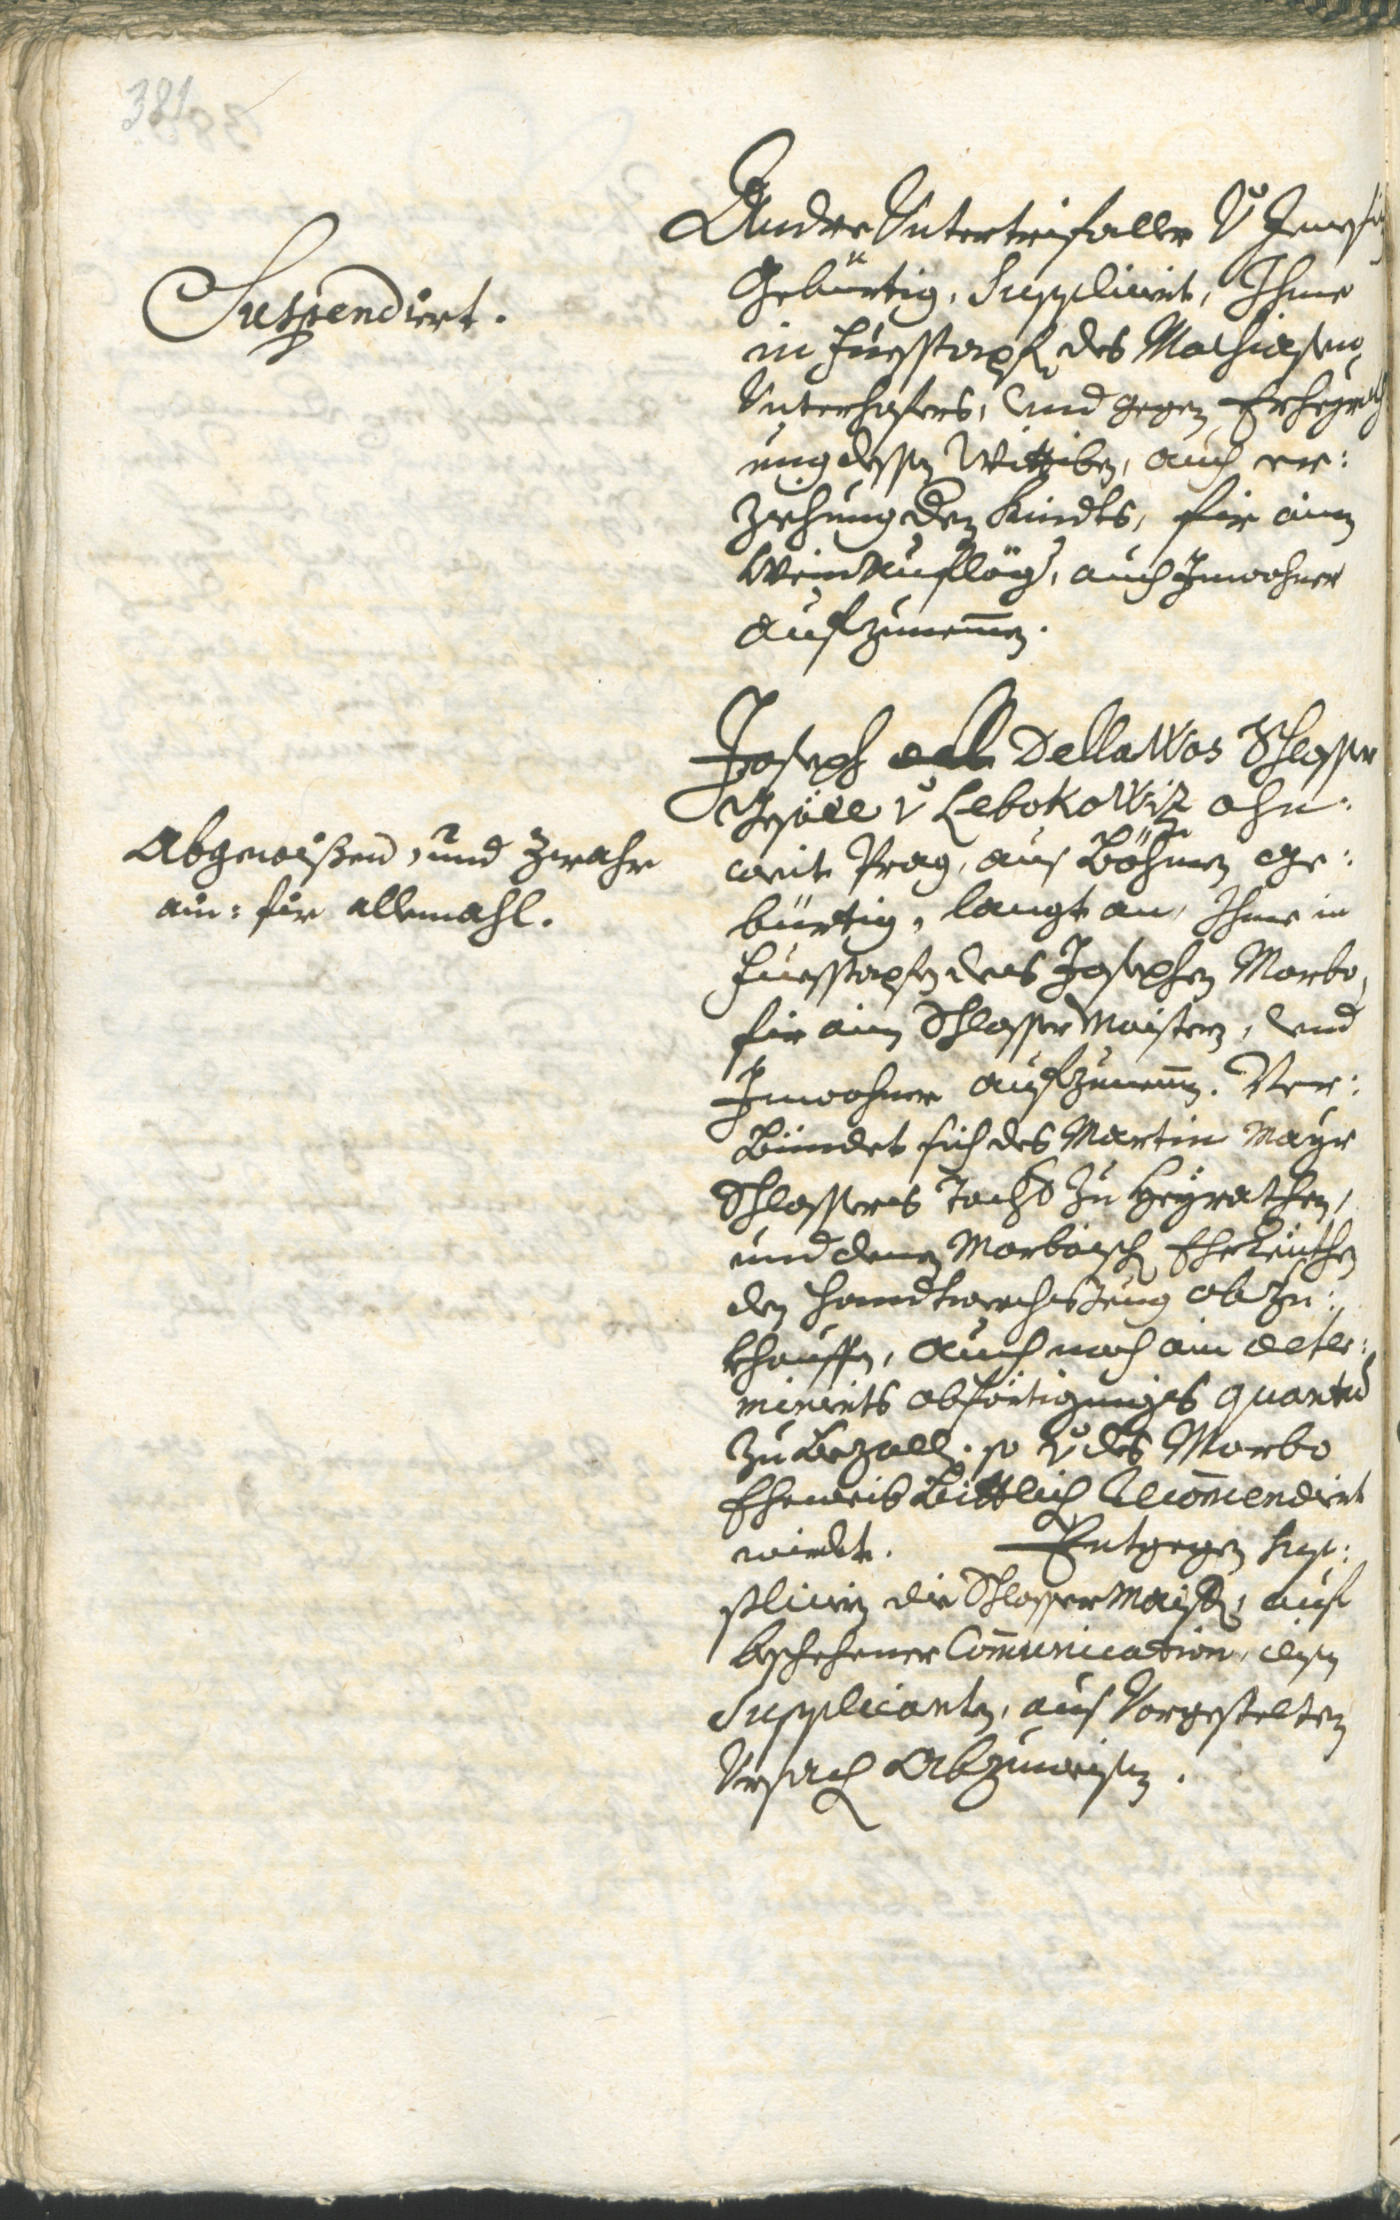 381
Suspendiert.
Andre Untertrifaller v Jenesi
Gebürtig, Supplicirt, Ihme
in Fuesstapfn des Mathiasen
Unterhofers, und gegen Erheyrath
ung dessen Wittiben, auch er:
ziehung den Kindts, für ainen
Weinaufleg, auch Inwohner
aufzunemen.
Abgewißen, und zwahr
ain: für allemahl.
Joseph Dellawos Schlosser
Gesöll v Lebokowiz ohn:
weit Prag, aus Böhmen ge:
bürtig, langt an, Ihme in
Fuesstapfen des Josephen Marbo,
für ainen Schlossermaistern, und
Inwohner aufzunemen. Ver:
bindet sich des Martin Mayr
Schlossers Tocht zu heyrathen,
und denen Marboisch Eheleuthen
den Handtwerchszeug abzu:
khauffen, auch noch ain deter:
minirts abförtigunges quantu
zu bezallen. so v des Marbo
Eheweib bittlich Recomendirt
wirdt. Entgegen Sup:
pliciren die Schlossermaister, auf
beschehener Comunication, disen
Supplicanten, aus Vorgestelten
Ursach abzuweisen.